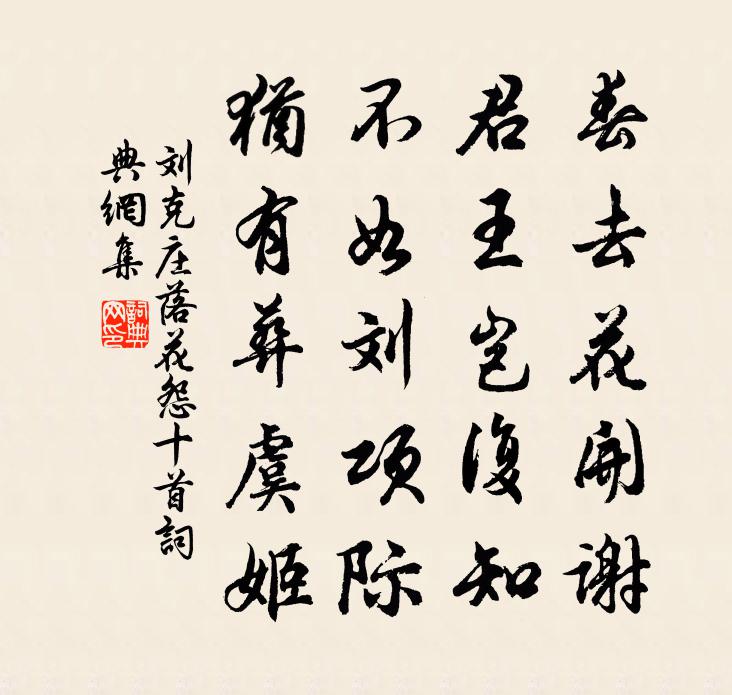 春去花開谢
君王岂復知
不如刘项际
猶有葬虞姬
刘克庄落花怨十首詞
典網集
詞典
网印